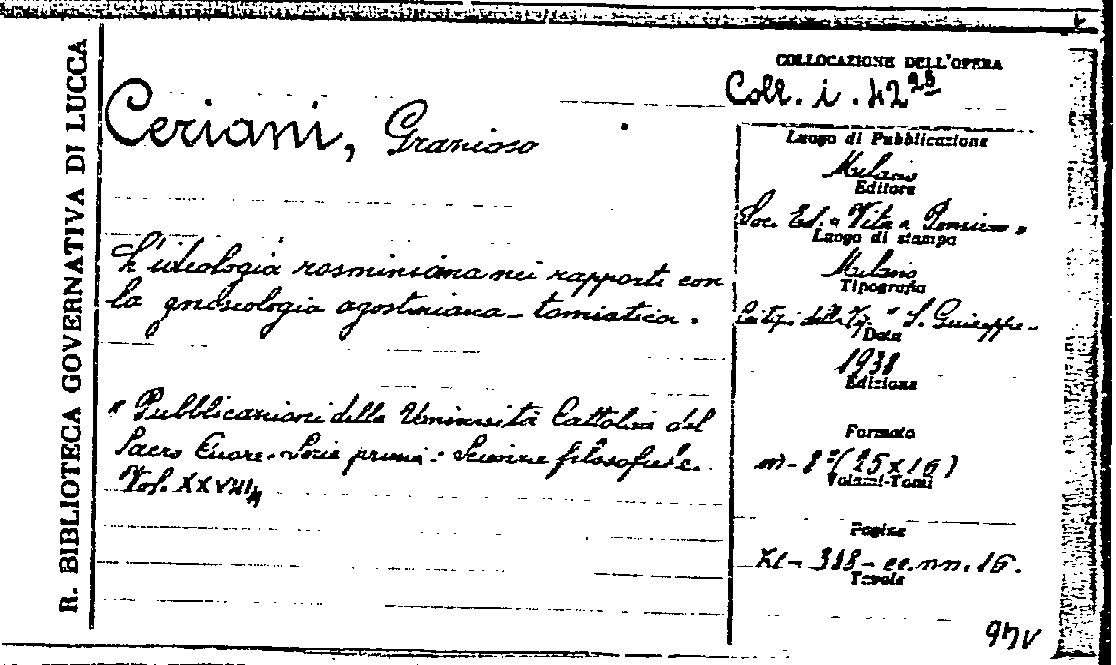 R. BIBLIOTECA GOVERNATIVA DI LUCCA
Ceriani, Granioso
L'ideologia rosminiana nei rapporti con
la gnoseologia agostiniana-tomistica.
" Pubblicazioni della Università Cattolica del
Sacro Cuore. Serie prima: Scienze filosofiche.
Vol. XXVIII
COLLOCAZIONE DELL'OPERA
Coll. i. 42
Luogo di Pubblicazione
Milano
Editore
Soc. Ed. "Vita e Pensiero"
Luogo di stampa
Milano
Tipografia
S. Giuseppe
Data
1938
Edizione
Formato
in-8° (25x16)
Volumi-Tomi
Pagine
XI-318-cc.nn. 16.
Tavole